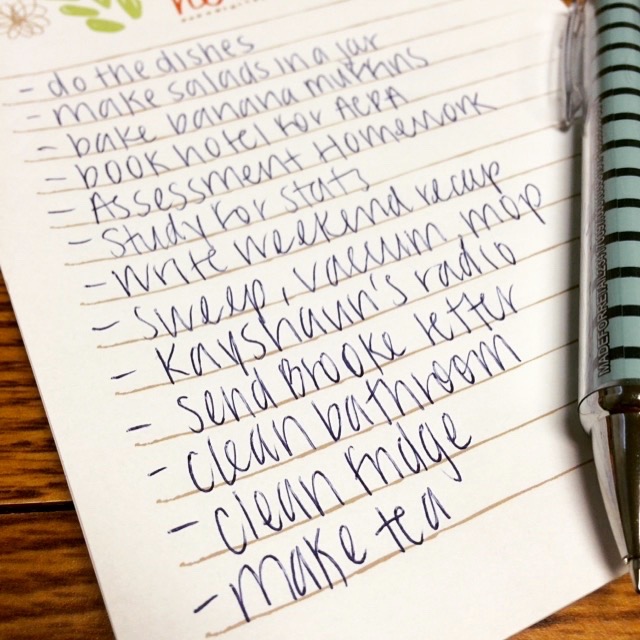 - do the dishes
- make salads in a jar
- bake banana muffins
- book hotel for AERA
- Assessment Homework
- study for stats
- write weekend recap
- sweep, vacuum, mop
- Kayshaun's radio
- send Brooke letter
- clean bathroom
- clean fridge
- make tea